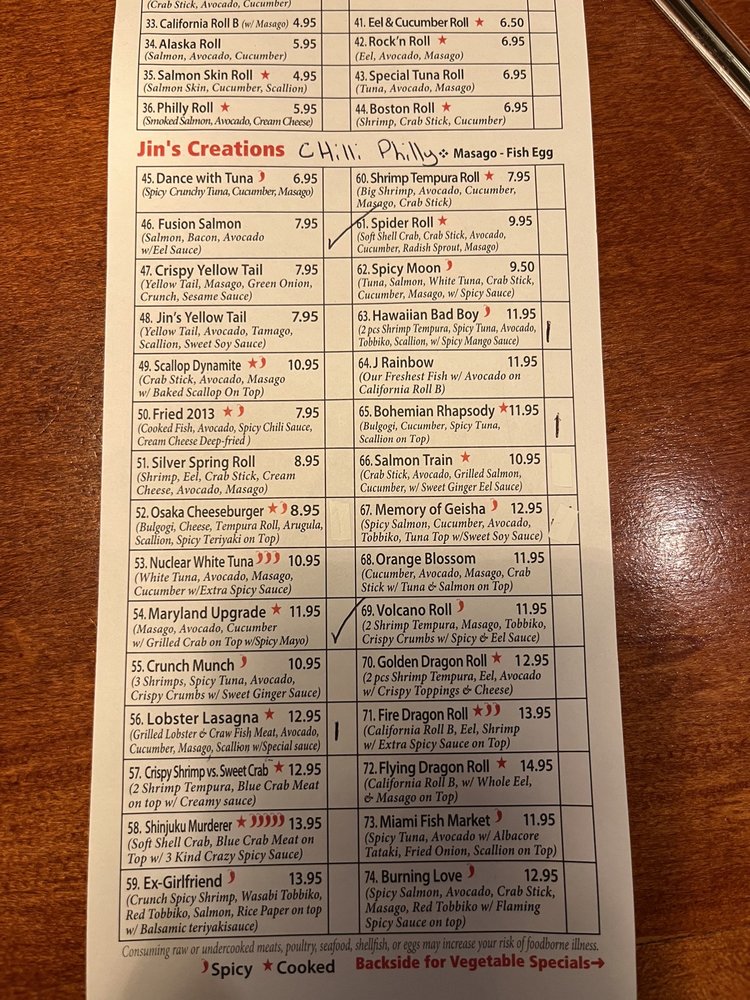 (Crab Stick, Avocado, Cucumber)
33. California Roll B (w/ Masago) 4.95
34. Alaska Roll 5.95
(Salmon, Avocado, Cucumber)
35. Salmon Skin Roll ★ 4.95
(Salmon Skin, Cucumber, Scallion)
36. Philly Roll ★ 5.95
(Smoked Salmon, Avocado, Cream Cheese)
41. Eel & Cucumber Roll ★ 6.50
42. Rock'n Roll ★ 6.95
(Eel, Avocado, Masago)
43. Special Tuna Roll 6.95
(Tuna, Avocado, Masago)
44. Boston Roll ★ 6.95
(Shrimp, Crab Stick, Cucumber)
Jin's Creations CHilli Philly ❖ Masago - Fish Egg
45. Dance with Tuna 6.95
(Spicy Crunchy Tuna, Cucumber, Masago)
46. Fusion Salmon 7.95
(Salmon, Bacon, Avocado
w/Eel Sauce)
47. Crispy Yellow Tail 7.95
(Yellow Tail, Masago, Green Onion,
Crunch, Sesame Sauce)
48. Jin's Yellow Tail 7.95
(Yellow Tail, Avocado, Tamago,
Scallion, Sweet Soy Sauce)
49. Scallop Dynamite ★ 10.95
(Crab Stick, Avocado, Masago
w/ Baked Scallop On Top)
50. Fried 2013 ★ 7.95
(Cooked Fish, Avocado, Spicy Chili Sauce,
Cream Cheese Deep-fried )
51. Silver Spring Roll 8.95
(Shrimp, Eel, Crab Stick, Cream
Cheese, Avocado, Masago)
52. Osaka Cheeseburger ★ 8.95
(Bulgogi, Cheese, Tempura Roll, Arugula,
Scallion, Spicy Teriyaki on Top)
53. Nuclear White Tuna 10.95
(White Tuna, Avocado, Masago,
Cucumber w/Extra Spicy Sauce)
54. Maryland Upgrade ★ 11.95
(Masago, Avocado, Cucumber
w/ Grilled Crab on Top w/Spicy Mayo)
55. Crunch Munch 10.95
(3 Shrimps, Spicy Tuna, Avocado,
Crispy Crumbs w/ Sweet Ginger Sauce)
56. Lobster Lasagna ★ 12.95
(Grilled Lobster & Craw Fish Meat, Avocado,
Cucumber, Masago, Scallion w/Special sauce)
57. Crispy Shrimp vs. Sweet Crab ★ 12.95
(2 Shrimp Tempura, Blue Crab Meat
on top w/ Creamy sauce)
58. Shinjuku Murderer ★ 13.95
(Soft Shell Crab, Blue Crab Meat on
Top w/ 3 Kind Crazy Spicy Sauce)
59. Ex-Girlfriend 13.95
(Crunch Spicy Shrimp, Wasabi Tobbiko,
Red Tobbiko, Salmon, Rice Paper on top
w/ Balsamic teriyakisauce)
60. Shrimp Tempura Roll ★ 7.95
(Big Shrimp, Avocado, Cucumber,
Masago, Crab Stick)
61. Spider Roll ★ 9.95
(Soft Shell Crab, Crab Stick, Avocado,
Cucumber, Radish Sprout, Masago)
62. Spicy Moon 9.50
(Tuna, Salmon, White Tuna, Crab Stick,
Cucumber, Masago, w/ Spicy Sauce)
63. Hawaiian Bad Boy 11.95
(2 pcs Shrimp Tempura, Spicy Tuna, Avocado,
Tobbiko, Scallion, w/ Spicy Mango Sauce)
64. J Rainbow 11.95
(Our Freshest Fish w/ Avocado on
California Roll B)
65. Bohemian Rhapsody ★ 11.95
(Bulgogi, Cucumber, Spicy Tuna,
Scallion on Top)
66. Salmon Train ★ 10.95
(Crab Stick, Avocado, Grilled Salmon,
Cucumber, w/ Sweet Ginger Eel Sauce)
67. Memory of Geisha 12.95
(Spicy Salmon, Cucumber, Avocado,
Tobbiko, Tuna Top w/Sweet Soy Sauce)
68. Orange Blossom 11.95
(Cucumber, Avocado, Masago, Crab
Stick w/ Tuna & Salmon on Top)
69. Volcano Roll 11.95
(2 Shrimp Tempura, Masago, Tobbiko,
Crispy Crumbs w/ Spicy & Eel Sauce)
70. Golden Dragon Roll ★ 12.95
(2 pcs Shrimp Tempura, Eel, Avocado
w/ Crispy Toppings & Cheese)
71. Fire Dragon Roll ★ 13.95
(California Roll B, Eel, Shrimp
w/ Extra Spicy Sauce on Top)
72. Flying Dragon Roll ★ 14.95
(California Roll B, w/ Whole Eel,
& Masago on Top)
73. Miami Fish Market 11.95
(Spicy Tuna, Avocado w/ Albacore
Tataki, Fried Onion, Scallion on Top)
74. Burning Love 12.95
(Spicy Salmon, Avocado, Crab Stick,
Masago, Red Tobbiko w/ Flaming
Spicy Sauce on top)
Consuming raw or undercooked meats, poultry, seafood, shellfish, or eggs may increase your risk of foodborne illness.
Spicy ★Cooked Backside for Vegetable Specials➔